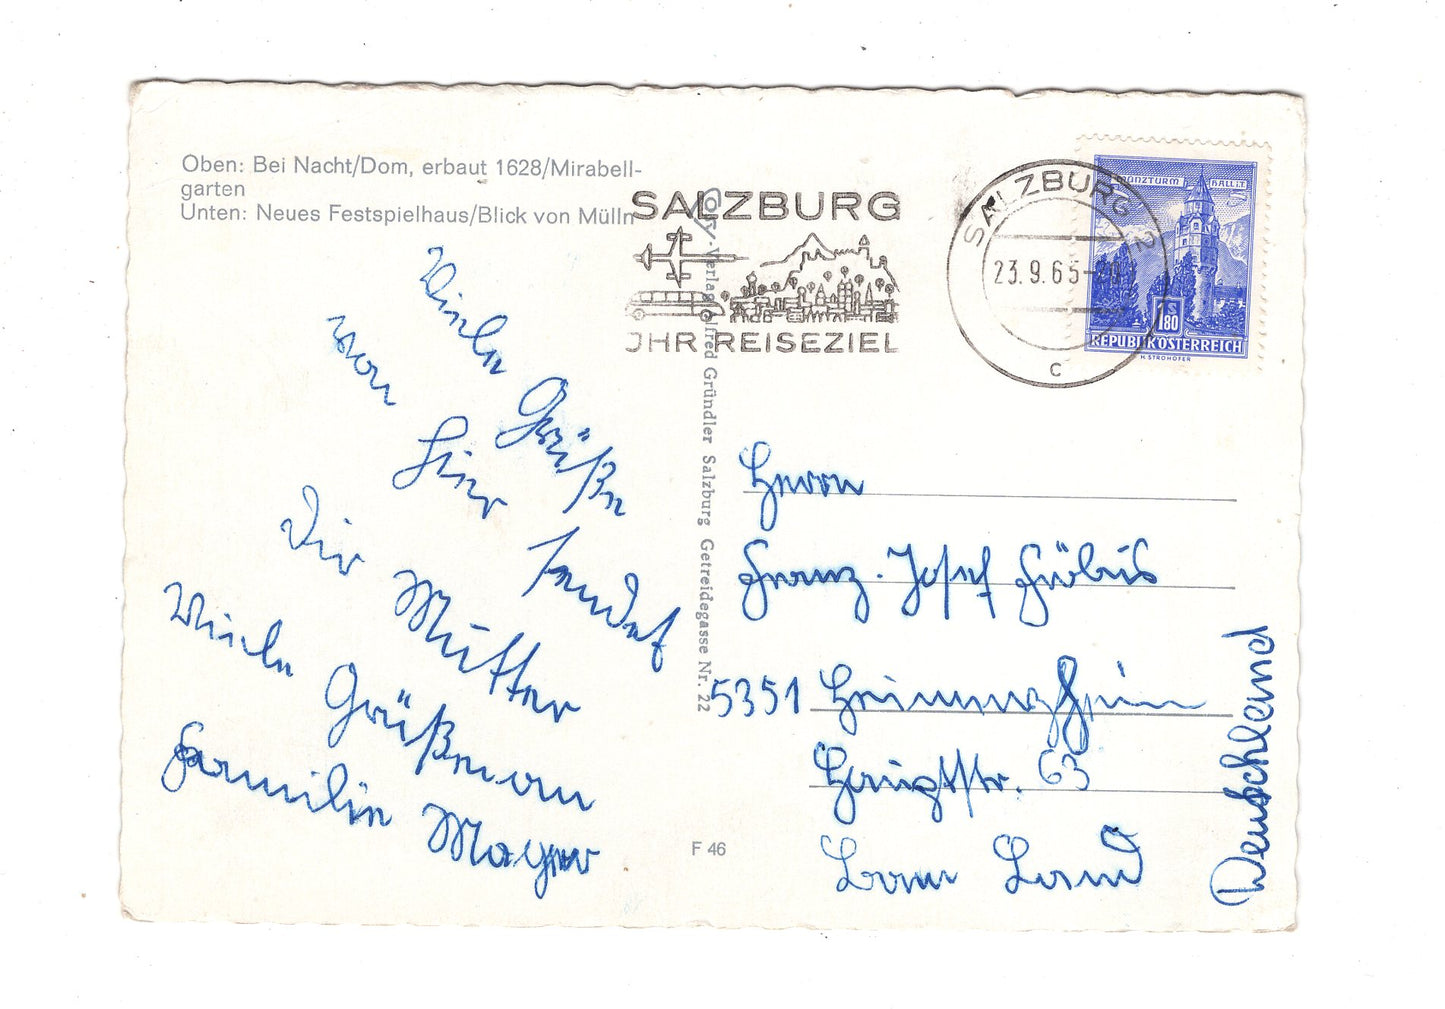 Oben: Bei Nacht/Dom, erbaut 1628/Mirabell-
garten
Unten: Neues Festspielhaus/Blick von Mülln
SALZBURG
JHR REISEZIEL
SALZBURG 2
23.9.65
c
MÜNZTURM HALL i.T.
1 S 80
REPUBLIK ÖSTERREICH
H. STROHOFER
Viele Grüße
von hier sendet
Dir Mutter
Viele Grüße von
Familie Mayer
Verlag Alfred Gründler Salzburg Getreidegasse Nr. 22
Herrn
Franz-Josef
5351 Heimerzheim
Hauptstr. 63
Land
Deutschland
F 46